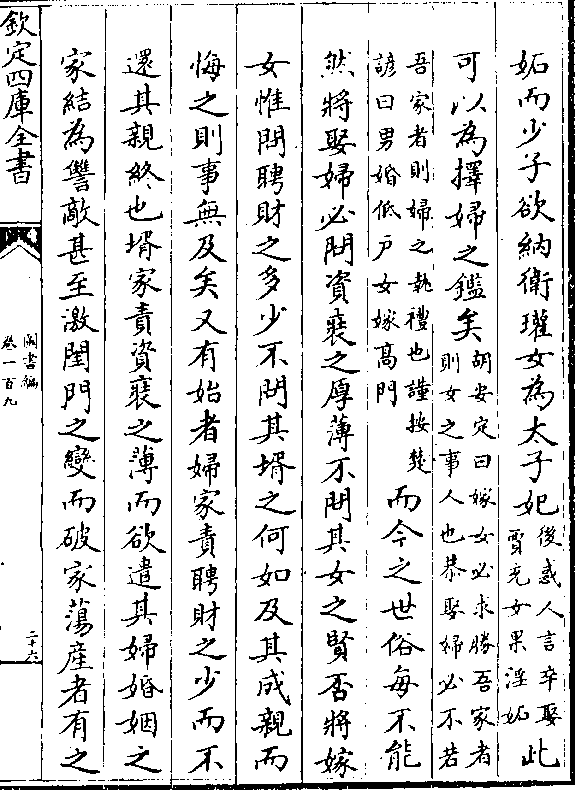 妬而少子欲納衛瓘女為太子妃後惑人言卒娶賈充女果淫妬此
可以為擇婦之鑑矣胡安定曰嫁女必求勝吾家者則女之事人也恭娶婦必不若
吾家者則婦之執禮也謹按楚諺曰男婚低户女嫁髙門而今之世俗每不能
然將娶婦必問資裝之厚薄不問其女之賢否將嫁
女惟問聘財之多少不問其壻之何如及其成親而
悔之則事無及矣又有始者婦家責聘財之少而不
還其親終也壻家責資裝之薄而欲遣其婦婚姻之
家結為讐敵甚至激閨門之變而破家蕩産者有之
欽定四庫全書
圖書編
卷一百九
二十六